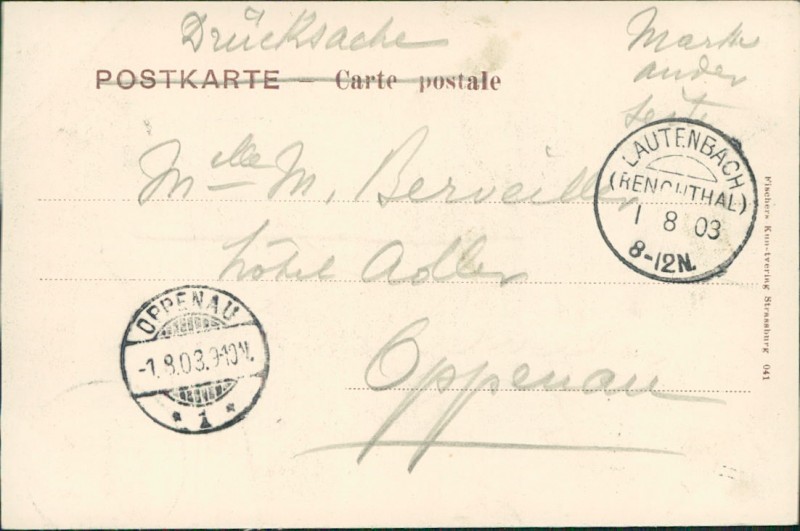 Drücksache
Marke
ander
Seite
POSTKARTE — Carte postale
LAUTENBACH
(RENCHTHAL)
1 8 03
8-12N.
Mlle M. Berveiller
hôtel Adler
Oppenau
OPPENAU
-1.8.03.9-10N.
* 1 *
Fischers Kunstverlag Strassburg 041